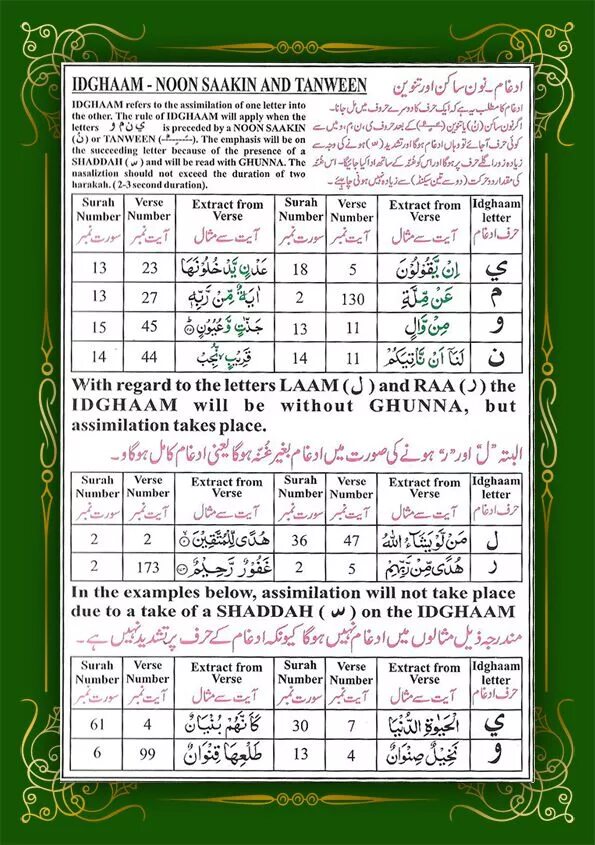 IDGHAAM - NOON SAAKIN AND TANWEEN
ادغام ۔ نون ساکن اور تنوین
IDGHAAM refers to the assimilation of one letter into
the other. The rule of IDGHAAM will apply when the
letters ي ن م و is preceded by a NOON SAAKIN
(نْ) or TANWEEN (ـًـٍـٌ). The emphasis will be on
the succeeding letter because of the presence of a
SHADDAH (ـّ) and will be read with GHUNNA. The
nasaliztion should not exceed the duration of two
harakah. ( 2-3 second duration).
ادغام کا مطلب یہ ہے کہ ایک حرف کا دوسرے حروف میں مل جانا۔
اگر نون ساکن (نْ) یا تنوین (ـًـٍـٌ) کے بعد حروف ی، ن، م، و میں سے
کوئی حرف آ جائے تو وہاں ادغام ہوگا اور تشدید (ـّ) ہونے کی وجہ سے
زیادہ زور اگلے حرف پر ہوگا اور اس کو غنّہ کے ساتھ ادا کیا جائیگا۔ اس غنّہ
کی مقدار دو حرکت (دو سے تین سیکنڈ) سے زیادہ نہیں ہونی چاہیئے۔
Surah Number سورت نمبر | Verse Number آیت نمبر | Extract from Verse آیت سے مثال | Surah Number سورت نمبر | Verse Number آیت نمبر | Extract from Verse آیت سے مثال | Idghaam letter حرف ادغام
13 | 23 | عَدْنٍ يَّدْخُلُوْنَهَا | 18 | 5 | اِنْ يَّقُوْلُوْنَ | ي
13 | 27 | اٰيَةٌ مِّنْ رَّبِّهٖ | 2 | 130 | عَنْ مِّلَّةِ | م
15 | 45 | جَنّٰتٍ وَّعُيُوْنٍ | 13 | 11 | مِنْ وَّالٍ | و
14 | 44 | قَرِيْبٍ نُّجِبْ | 14 | 11 | لَنَآ اَنْ نَّاْتِيَكُمْ | ن
With regard to the letters LAAM (ل) and RAA (ر) the
IDGHAAM will be without GHUNNA, but
assimilation takes place.
البتہ ”ل“ اور ”ر“ ہونے کی صورت میں ادغام بغیر غنّہ ہوگا یعنی ادغام کامل ہوگا و۔
Surah Number سورت نمبر | Verse Number آیت نمبر | Extract from Verse آیت سے مثال | Surah Number سورت نمبر | Verse Number آیت نمبر | Extract from Verse آیت سے مثال | Idghaam letter حرف ادغام
2 | 2 | هُدًى لِّلْمُتَّقِيْنَ | 36 | 47 | مَنْ لَّوْ يَشَآءُ اللّٰهُ | ل
2 | 173 | غَفُوْرٌ رَّحِيْمٌ | 2 | 5 | هُدًى مِّنْ رَّبِّهِمْ | ر
In the examples below, assimilation will not take place
due to a take of a SHADDAH (ـّ) on the IDGHAAM
مندرجہ ذیل مثالوں میں ادغام نہیں ہوگا کیونکہ ادغام کے حرف پر تشدید نہیں ہے۔
Surah Number سورت نمبر | Verse Number آیت نمبر | Extract from Verse آیت سے مثال | Surah Number سورت نمبر | Verse Number آیت نمبر | Extract from Verse آیت سے مثال | Idghaam letter حرف ادغام
61 | 4 | كَاَنَّهُمْ بُنْيَانٌ | 30 | 7 | الْحَيٰوةِ الدُّنْيَا | ي
6 | 99 | طَلْعِهَا قِنْوَانٌ | 13 | 4 | نَخِيْلٌ صِنْوَانٌ | و